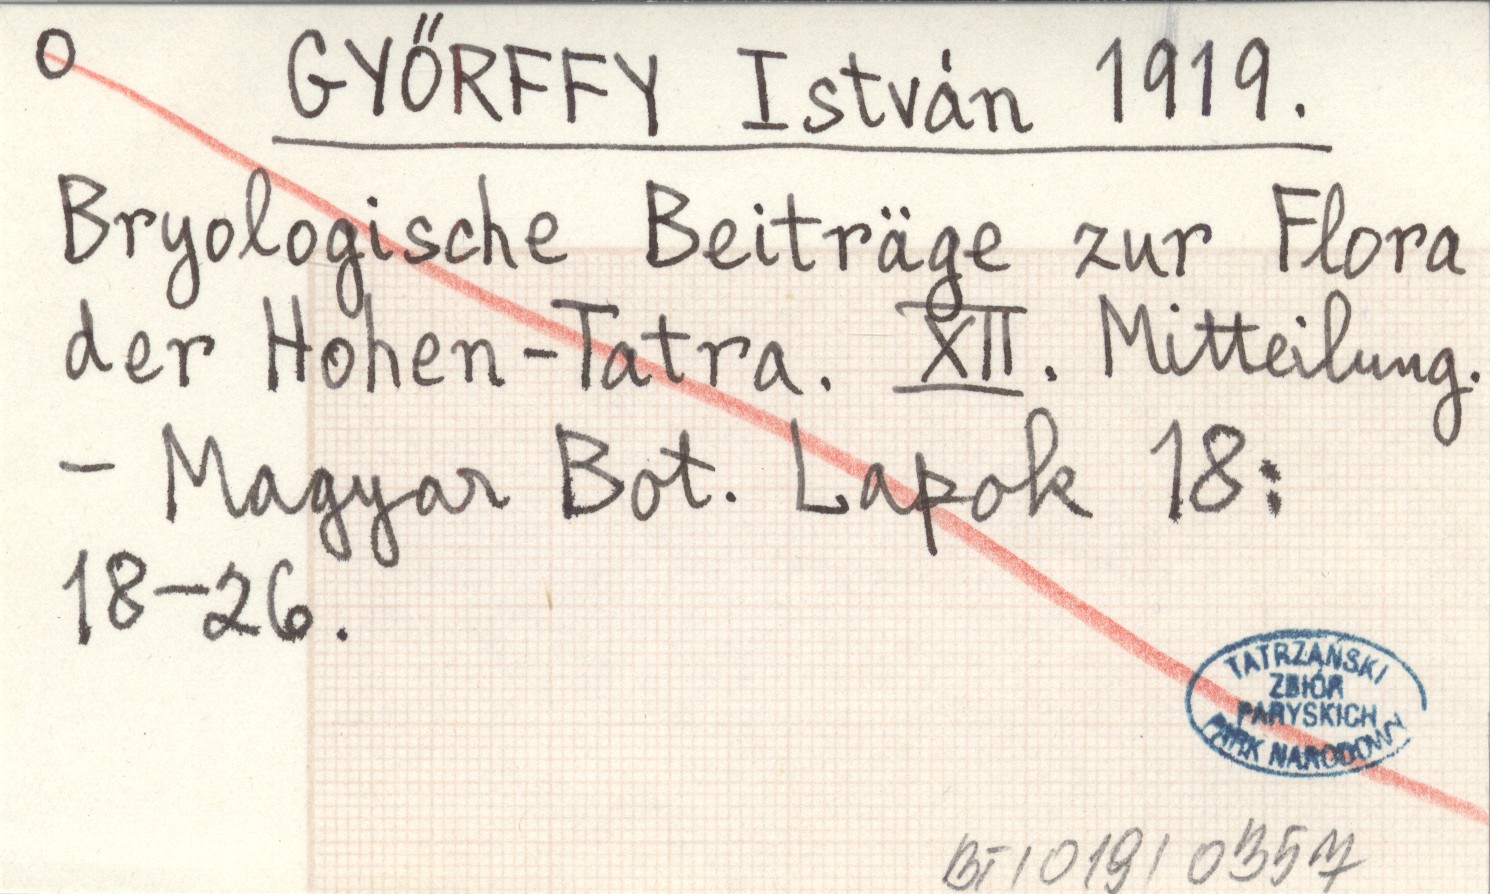 O GYŐRFFY István 1919.
Bryologische Beiträge zur Flora
der Hohen-Tatra. XII. Mitteilung.
- Magyar Bot. Lapok 18:
18-26.
TATRZAŃSKI
ZBIÓR
PARYSKICH
PARK NARODOWY
BT/019/0357